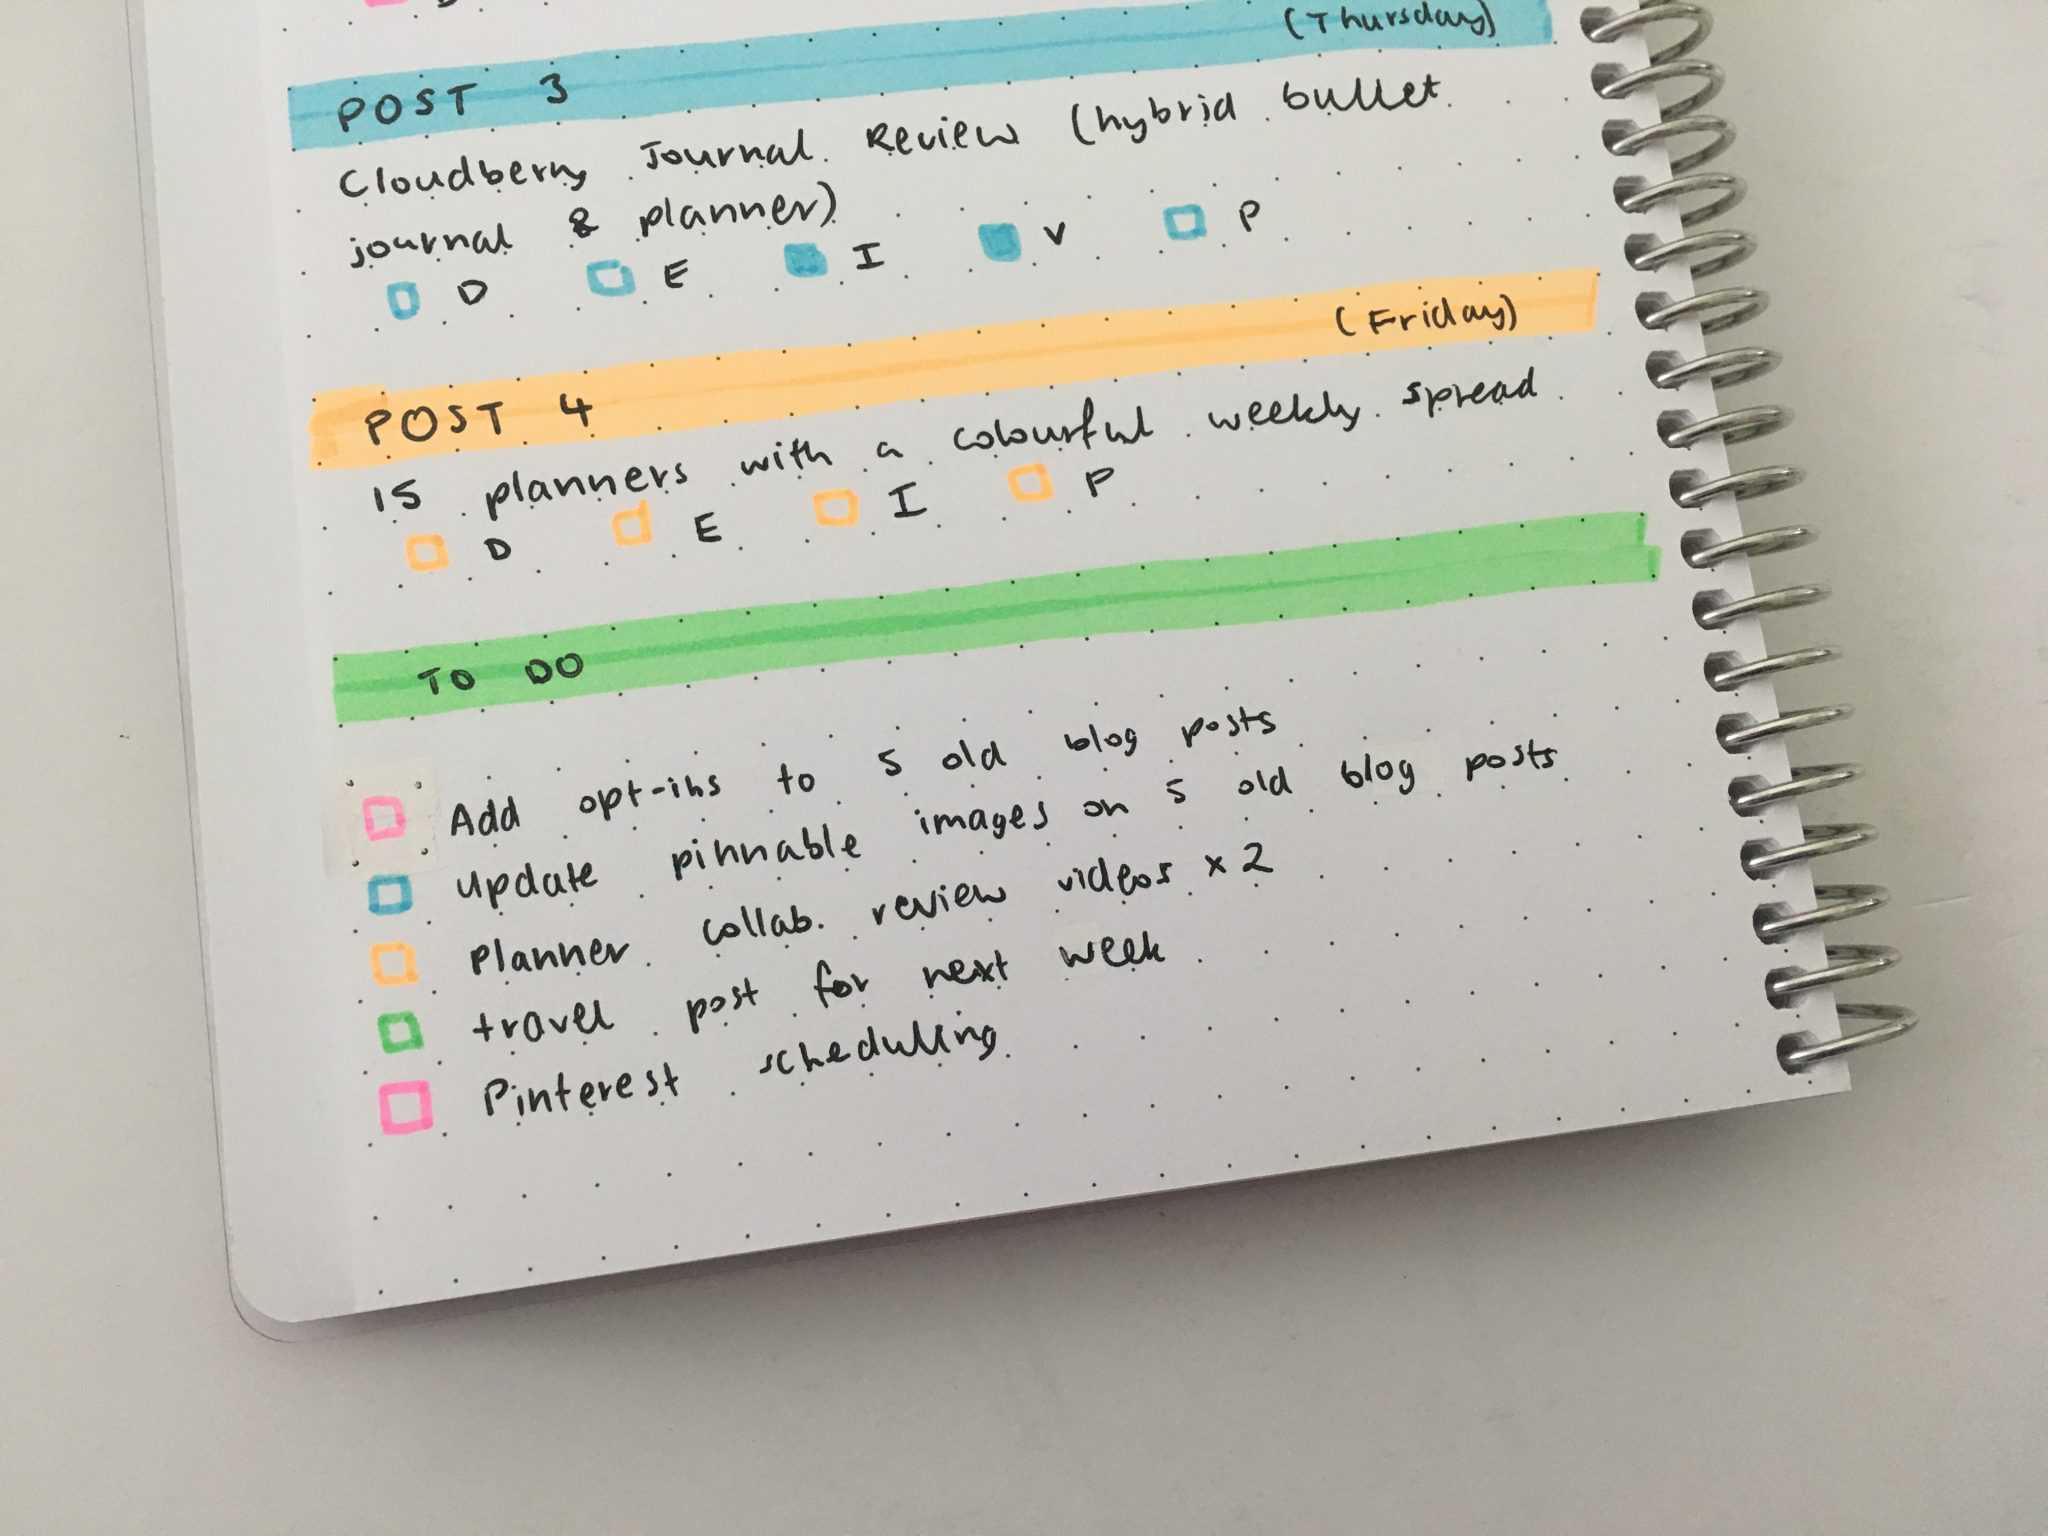 POST 3 (Thursday)
Cloudberry Journal Review (hybrid bullet
journal & planner)
D E I V P
POST 4 (Friday)
15 planners with a colourful weekly spread
D E I P
TO DO
Add opt-ins to 5 old blog posts
Update pinnable images on 5 old blog posts
Planner collab. review videos x 2
travel post for next week
Pinterest scheduling